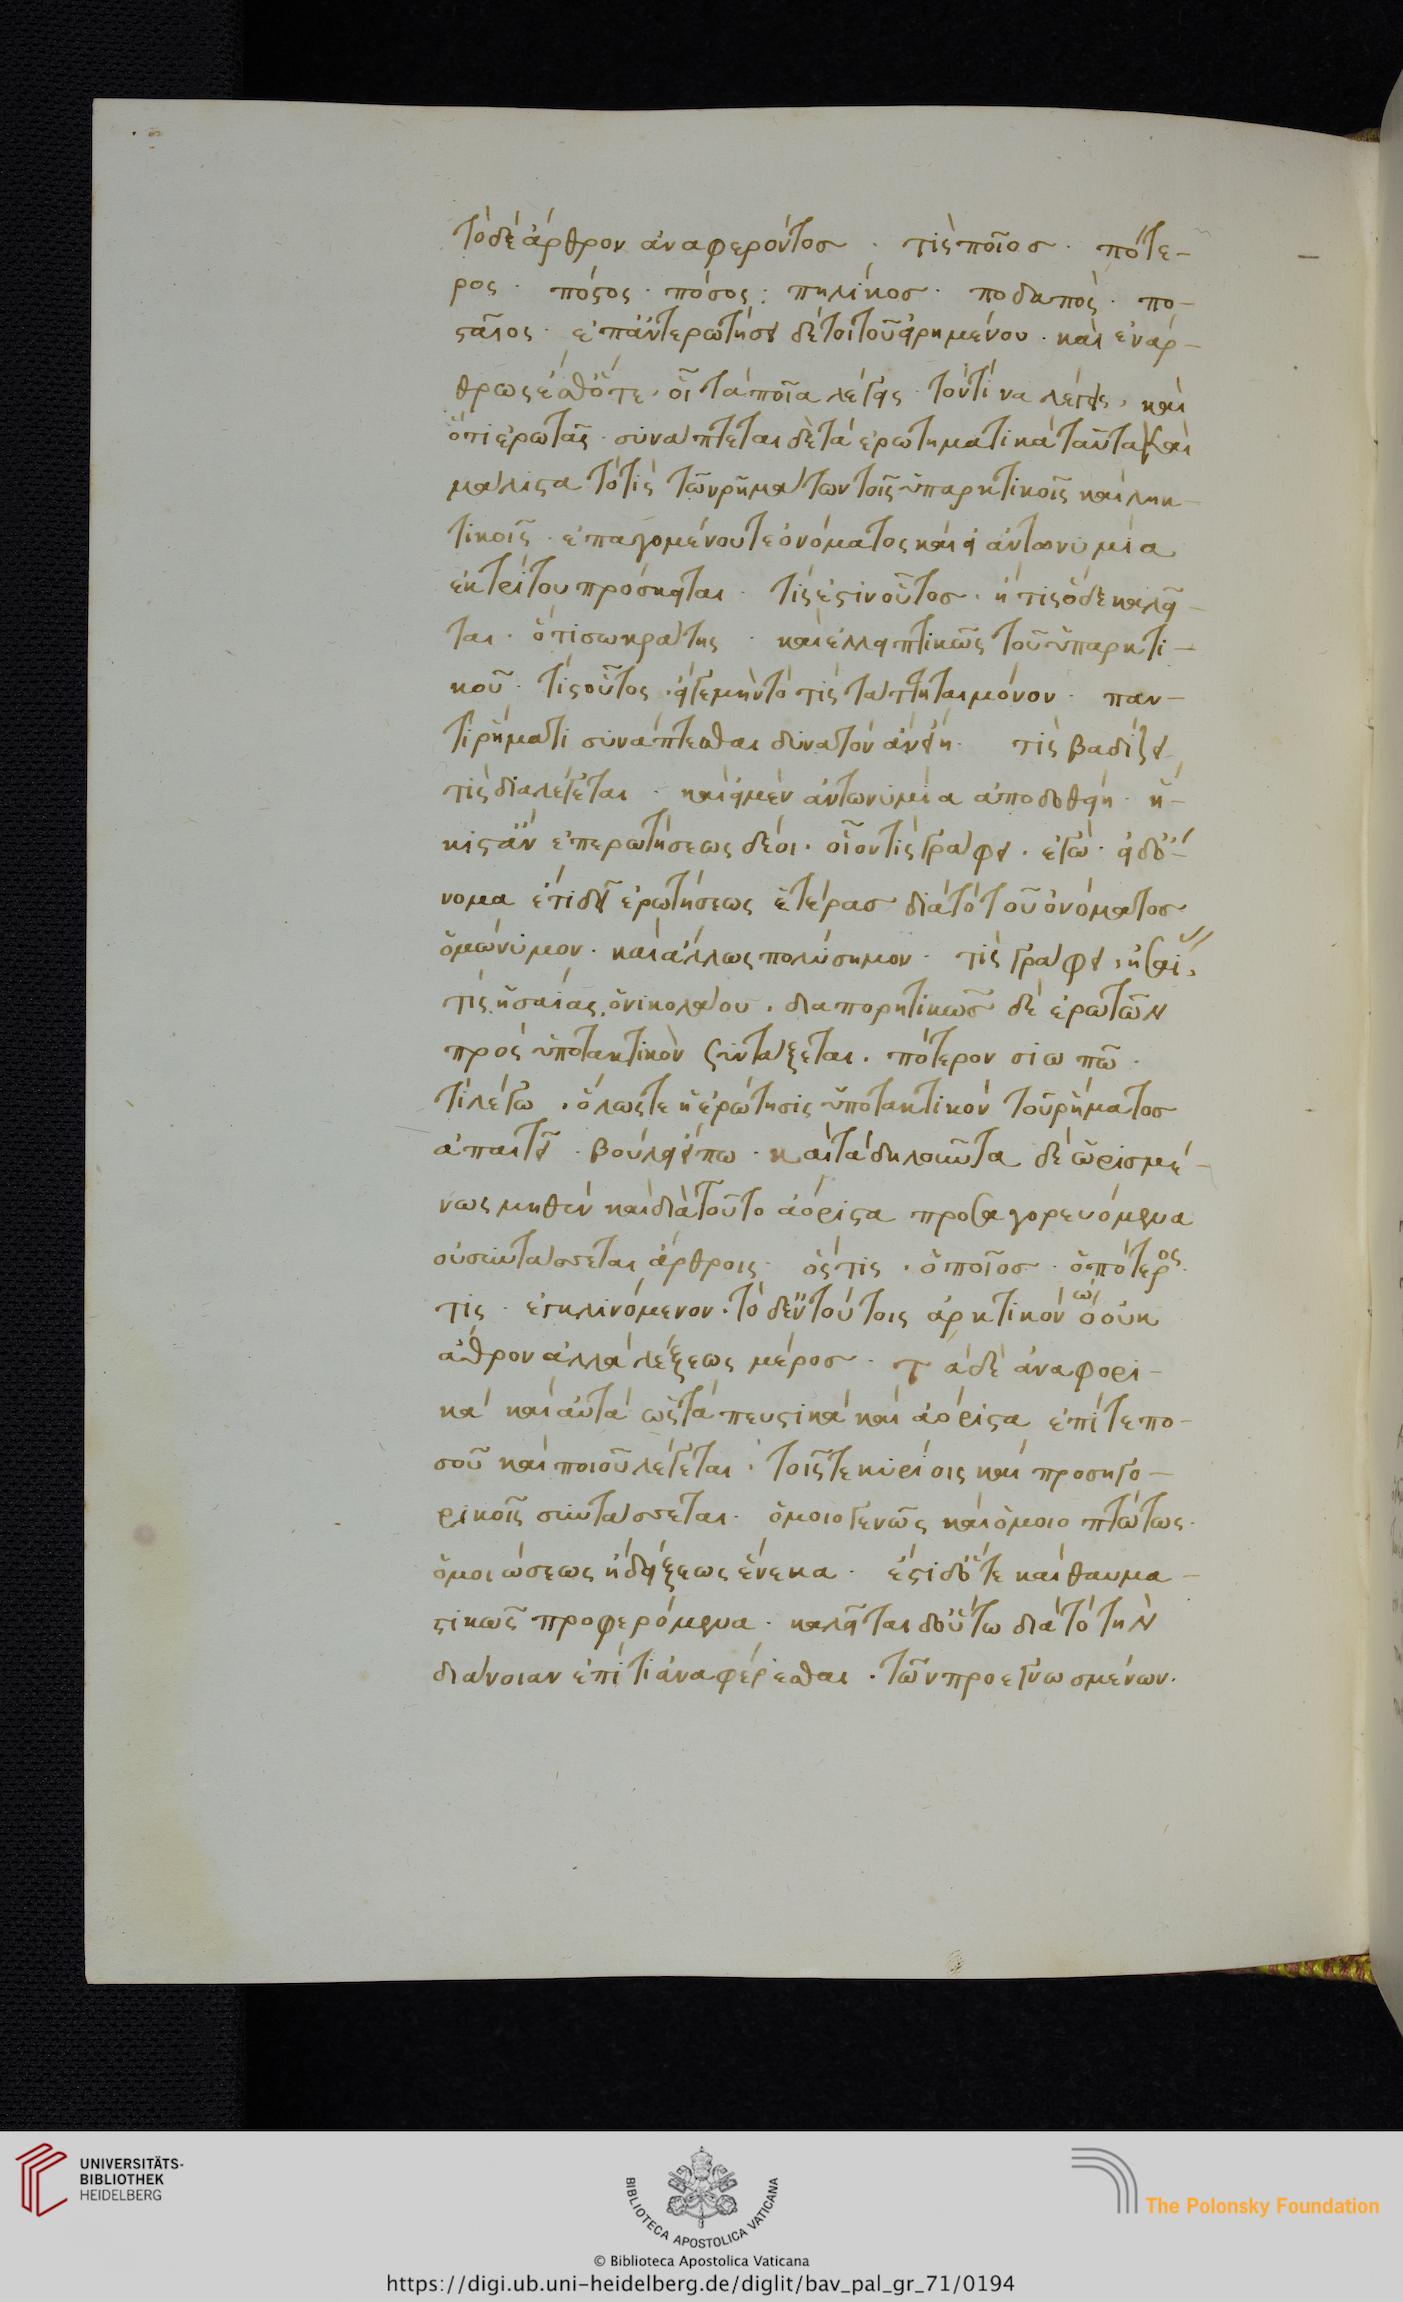 τὸ δὲ ἄρθρον ἀναφέροντος · τίς ποῖος · πότε-
ρος · πόστος · πόσος · πηλίκος · ποδαπός · πο-
σταῖος · ἐπ' ἀντερωτήσει δέ τοι τοῦ εἰρημένου · καὶ ἐνάρ-
θρως ἔσθ' ὅτε · οἷ τὰ ποῖα λέγεις · τὸν τίνα λέγεις · καὶ
ὅτι ἐρωτᾷς · συνάπτεται δὲ τὰ ἐρωτηματικὰ ταῦτα καὶ
μάλιστα τὸ τίς τῶν ῥημάτων τοῖς ὑπαρκτικοῖς καὶ κλη-
τικοῖς · ἐπαγομένου τε ὀνόματος καὶ εἰ ἀντωνυμία
ἐκ τρίτου πρόσκειται · τίς ἐστὶν οὗτος · ἢ τίς ὅδε καλεῖ-
ται · ὅτι σωκράτης · καὶ ἐλλειπτικῶς τοῦ ὑπαρκτι-
κοῦ · τίς οὗτος · εἴ γε μὴν τὸ τίς τάττηται μόνον · παν-
τὶ ῥήματι συνάπτεσθαι δυνατὸν ἂν εἴη · τίς βαδίζει
τίς διαλέγεται · καὶ εἰ μὲν ἀντωνυμία ἀποδοθείη · ἥ-
κιστ' ἂν ἐπερωτήσεως δέοι · οἷον τίς γράφει · ἐγώ · εἰ δ' ὄ-
νομα ἔτι δεῖ ἐρωτήσεως ἑτέρας διὰ τὸ τοῦ ὀνόματος
ὁμώνυμον · καὶ ἄλλως πολύσημον · τίς γράφει · ἡσαΐας
τίς ἡσαίας, ὁ νικολάου · διαπορητικῶς δὲ ἐρωτῶν
πρὸς ὑποτακτικὸν συντάξεται · πότερον σιωπῶ ·
τί λέγω · ὅλως τε ἡ ἐρώτησις ὑποτακτικὸν τοῦ ῥήματος
ἀπαιτεῖ · βούλει εἴπω · καὶ τὰ δηλοῦντα δὲ ὡρισμέ-
νως μηθὲν καὶ διὰ τοῦτο ἀόριστα προσαγορευόμενα
οὐ συντάσσεται ἄρθροις · ὅστις · ὁποῖος · ὁπότερος ·
τίς · ἐγκλινόμενον · τὸ δ' ἐν τούτοις ἀρκτικὸν ὁ οὐκ
ἄθρον ἀλλὰ λέξεως μέρος · τὰ δὲ ἀναφορι-
κὰ καὶ αὐτὰ ὡς τὰ πευστικὰ καὶ ἀόριστα ἐπί τε πο-
σοῦ καὶ ποιοῦ λέγεται · τοῖς τε κυρίοις καὶ προσηγο-
ρικοῖς συντάσσεται · ὁμοιογενῶς καὶ ὁμοιοπτώτως ·
ὁμοιώσεως ἢ δείξεως ἕνεκα · ἔστι δ' ὅτε καὶ θαυμα-
στικῶς προφερόμενα · καλεῖται δ' οὕτω διὰ τὸ τὴν
διάνοιαν ἐπί τι ἀναφέρεσθαι · τῶν προεγνωσμένων.
UNIVERSITÄTS-
BIBLIOTHEK
HEIDELBERG
BIBLIOTECA APOSTOLICA VATICANA
The Polonsky Foundation
© Biblioteca Apostolica Vaticana
https://digi.ub.uni-heidelberg.de/diglit/bav_pal_gr_71/0194